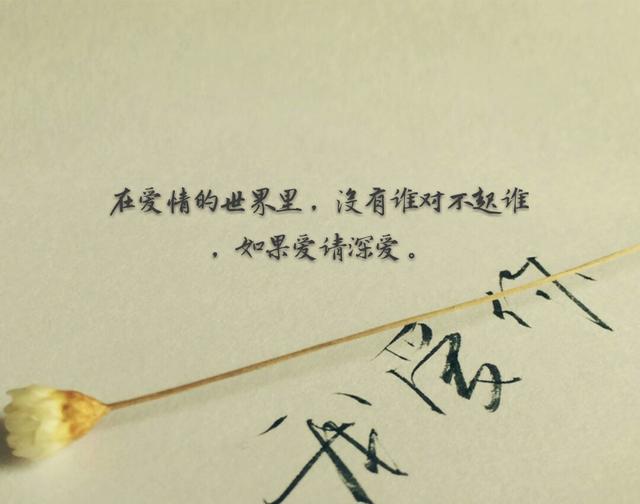 在爱情的世界里，没有谁对不起谁
，如果爱请深爱。
我爱你